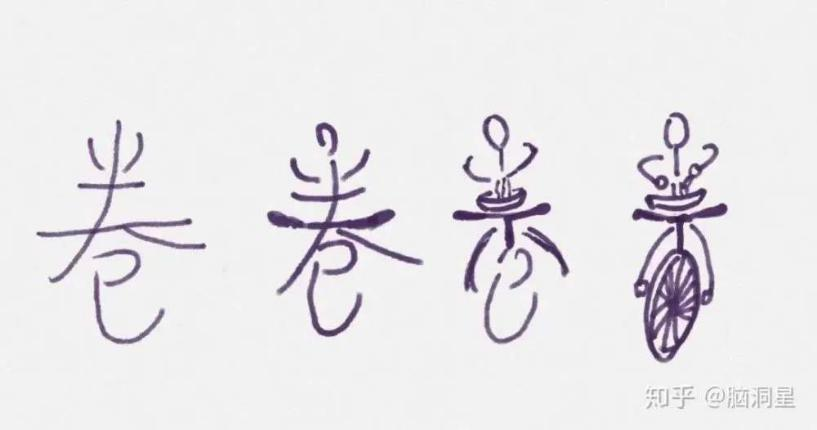 卷 卷
知乎 @脑洞星